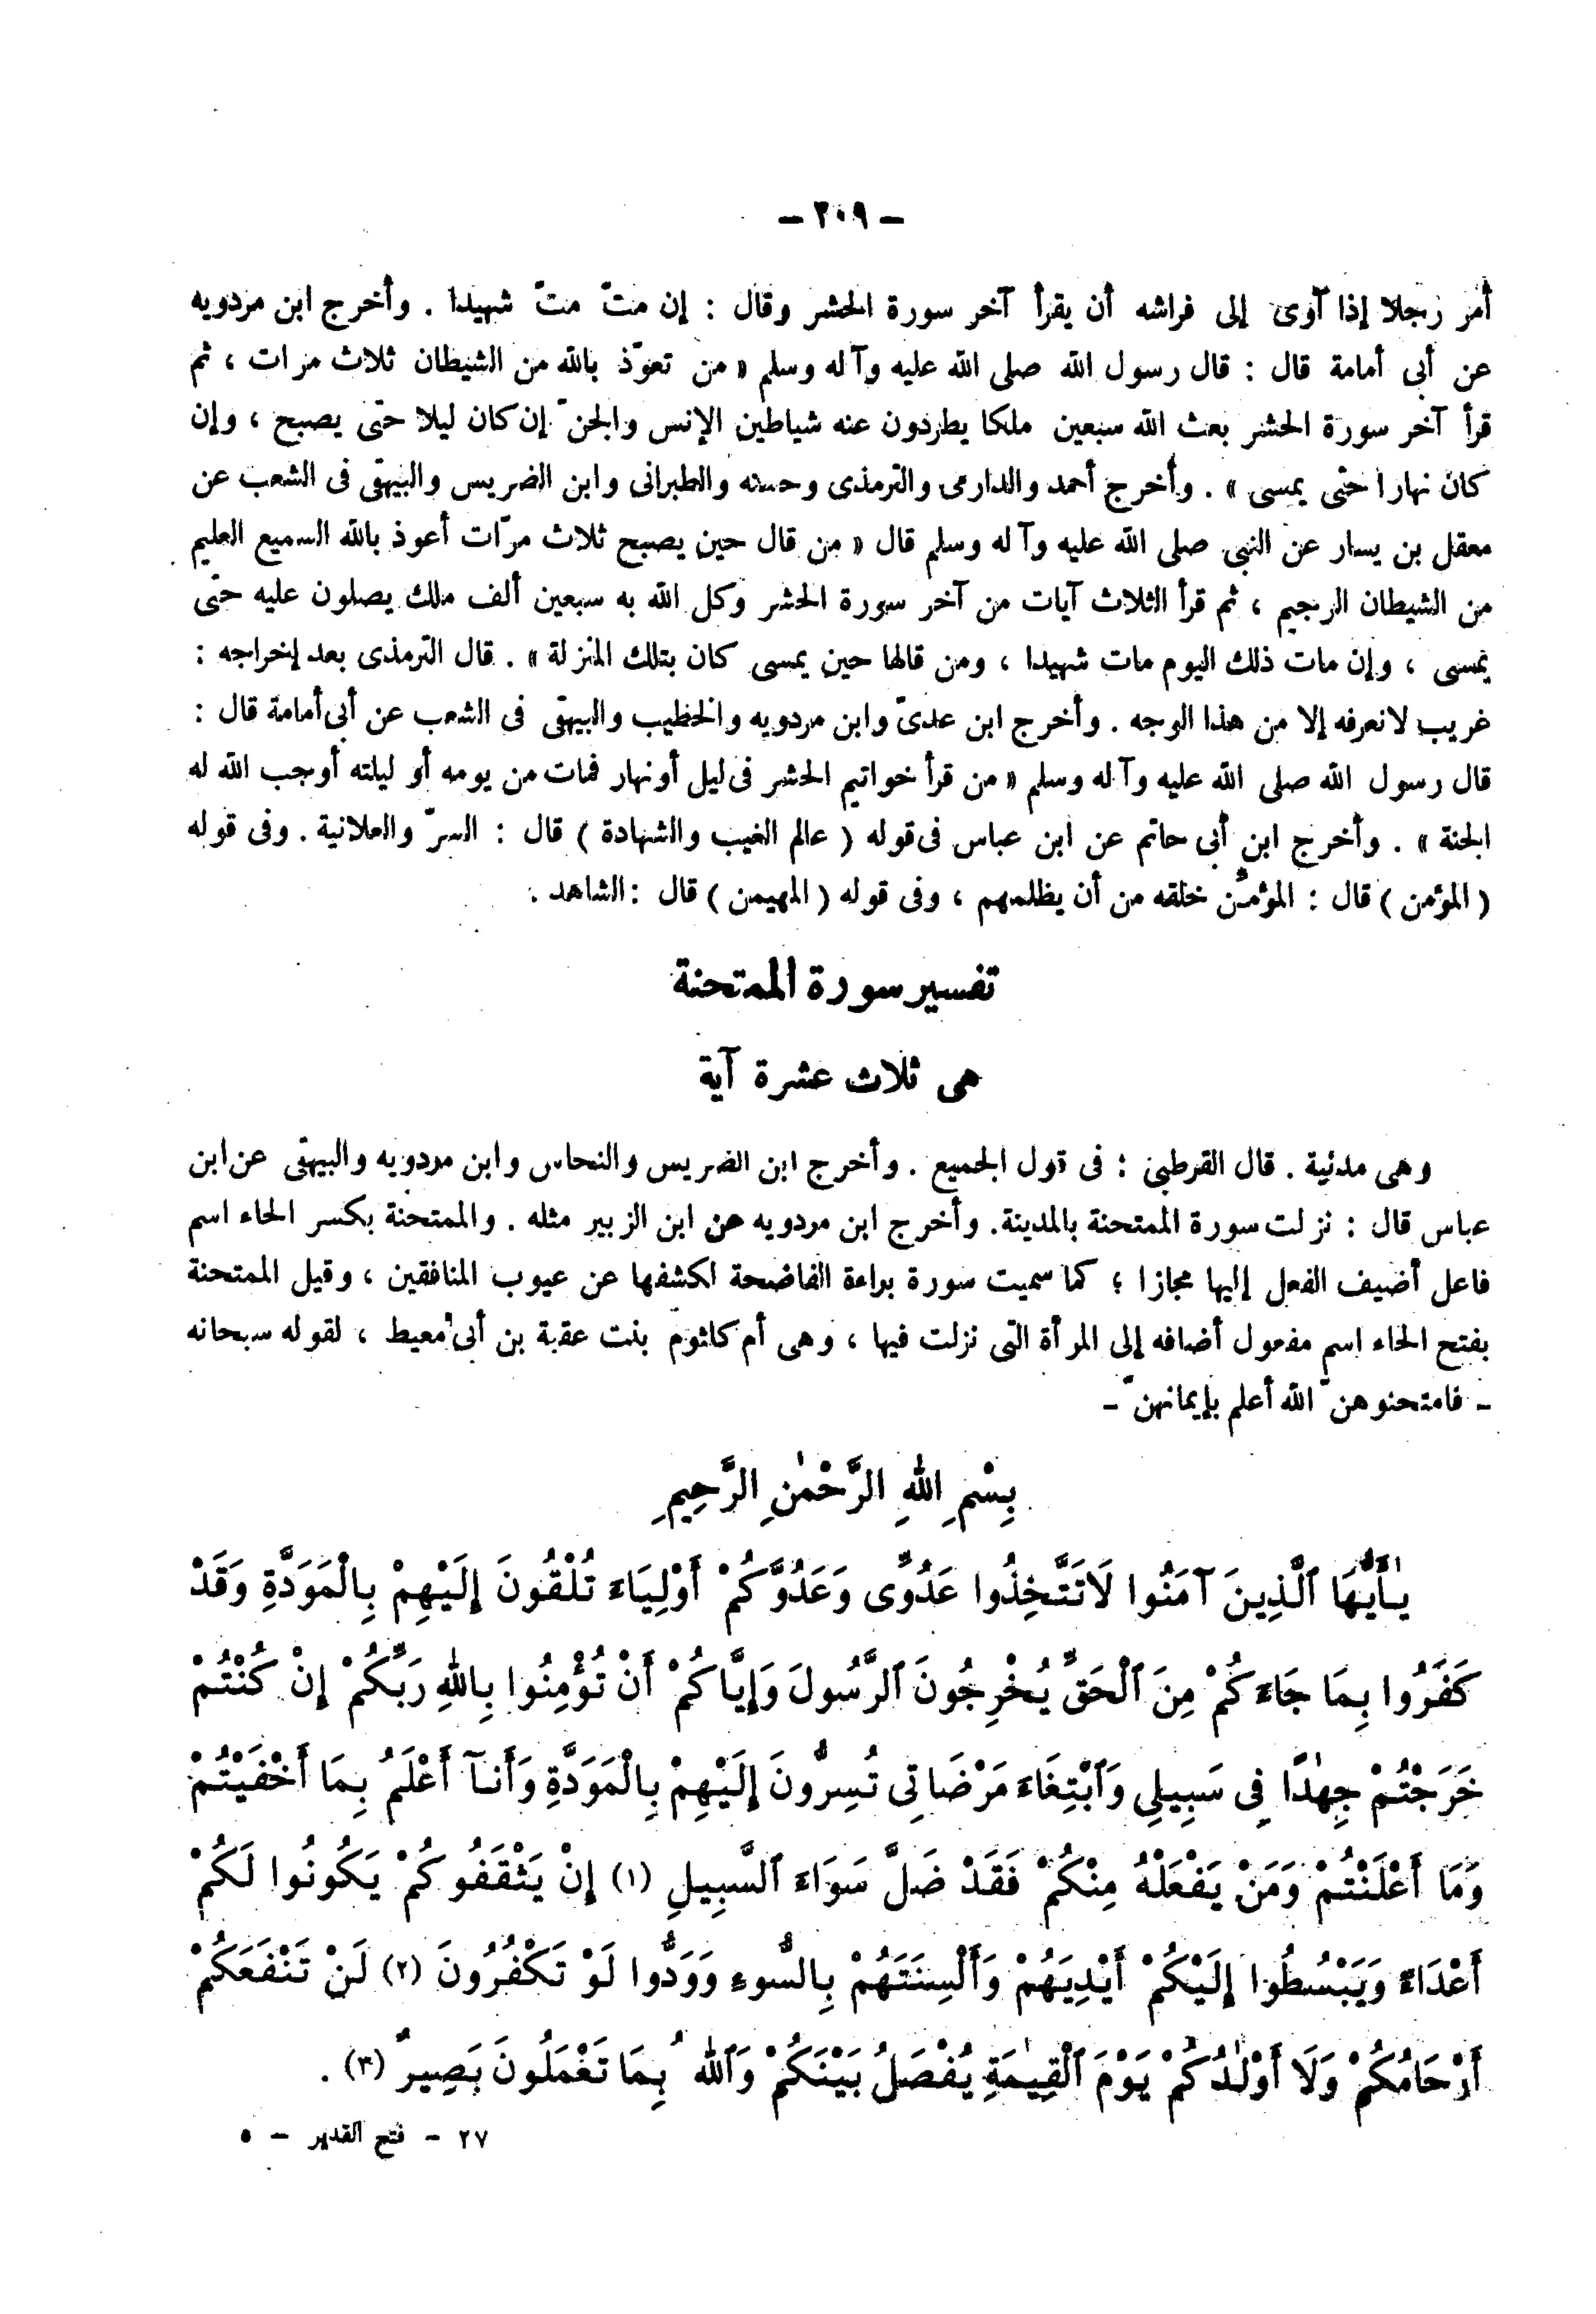 – ٢٠٩ –
أمر رجلا إذا آوى إلى فراشه أن يقرأ آخر سورة الحشر وقال : إن متّ متّ شهيدا . وأخرج ابن مردويه
عن أبى أمامة قال : قال رسول الله صلى الله عليه وآله وسلم « من تعوّذ بالله من الشيطان ثلاث مرات ، ثم
قرأ آخر سورة الحشر بعث الله سبعين ملكا يطردون عنه شياطين الإنس والجنّ إن كان ليلا حتى يصبح ، وإن
كان نهارا حتى يمسى » . وأخرج أحمد والدارمى والترمذى وحسنه والطبرانى وابن الضريس والبيهقى فى الشعب عن
معقل بن يسار عن النبى صلى الله عليه وآله وسلم قال « من قال حين يصبح ثلاث مرّات أعوذ بالله السميع العليم
من الشيطان الرجيم ، ثم قرأ الثلاث آيات من آخر سورة الحشر وكل الله به سبعين ألف ملك يصلون عليه حتى
يمسى ، وإن مات ذلك اليوم مات شهيدا ، ومن قالها حين يمسى كان بتلك المنزلة » . قال الترمذى بعد إخراجه :
غريب لانعرفه إلا من هذا الوجه . وأخرج ابن عدىّ وابن مردويه والخطيب والبيهقى فى الشعب عن أبى أمامة قال :
قال رسول الله صلى الله عليه وآله وسلم « من قرأ خواتيم الحشر فى ليل أونهار فمات من يومه أو ليلته أوجب الله له
الجنة » . وأخرج ابن أبى حاتم عن ابن عباس فى قوله ( عالم الغيب والشهادة ) قال : السرّ والعلانية . وفى قوله
( المؤمن ) قال : المؤمّن خلقه من أن يظلمهم ، وفى قوله ( المهيمن ) قال : الشاهد .
تفسير سورة الممتحنة
هى ثلاث عشرة آية
وهى مدنية . قال القرطبىّ : فى قول الجميع . وأخرج ابن الضريس والنحاس وابن مردويه والبيهقى عن ابن
عباس قال : نزلت سورة الممتحنة بالمدينة. وأخرج ابن مردويه عن ابن الزبير مثله . والممتحنة بكسر الحاء اسم
فاعل أضيف الفعل إليها مجازا ؛ كما سميت سورة براءة الفاضحة لكشفها عن عيوب المنافقين ، وقيل الممتحنة
بفتح الحاء اسم مفعول أضافه إلى المرأة التى نزلت فيها ، وهى أم كلثوم بنت عقبة بن أبى معيط ، لقوله سبحانه
– فامتحنوهنّ الله أعلم بإيمانهنّ –
بِسْمِ اللهِ الرَّحْمٰنِ الرَّحِيمِ
يٰأَيُّهَا ٱلَّذِينَ آمَنُوا لَاتَتَّخِذُوا عَدُوِّى وَعَدُوَّكُمْ أَوْلِيَاءَ تُلْقُونَ إِلَيْهِمْ بِالْمَوَدَّةِ وَقَدْ
كَفَرُوا بِمَا جَاءَكُمْ مِنَ ٱلْحَقِّ يُخْرِجُونَ ٱلرَّسُولَ وَإِيَّاكُمْ أَنْ تُؤْمِنُوا بِاللهِ رَبِّكُمْ إِنْ كُنْتُمْ
خَرَجْتُمْ جِهٰدًا فِى سَبِيلِى وَٱبْتِغَاءَ مَرْضَاتِى تُسِرُّونَ إِلَيْهِمْ بِالْمَوَدَّةِ وَأَنَآ أَعْلَمُ بِمَا أَخْفَيْتُمْ
وَمَا أَعْلَنْتُمْ وَمَنْ يَفْعَلْهُ مِنْكُمْ فَقَدْ ضَلَّ سَوَاءَ ٱلسَّبِيلِ (١) إِنْ يَثْقَفُوكُمْ يَكُونُوا لَكُمْ
أَعْدَاءً وَيَبْسُطُوا إِلَيْكُمْ أَيْدِيَهُمْ وَأَلْسِنَتَهُمْ بِالسُّوءِ وَوَدُّوا لَوْ تَكْفُرُونَ (٢) لَنْ تَنْفَعَكُمْ
أَرْحَامُكُمْ وَلَا أَوْلٰدُكُمْ يَوْمَ ٱلْقِيٰمَةِ يُفْصَلُ بَيْنَكُمْ وَٱللهُ بِمَا تَعْمَلُونَ بَصِيرٌ (٣) .
٢٧ – فتح القدير – ٥